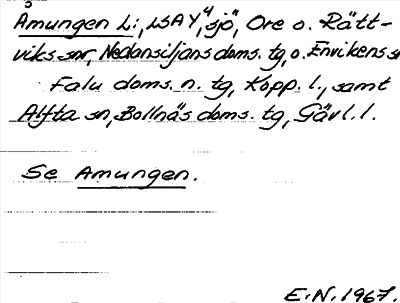 3
Amungen L:, LSAY, 4 "sjö", Ore o. Rätt-
viks snr, Nedansiljans doms. tg, o. Envikens sn
Falu doms. n. tg, Kopp. l., samt
Alfta sn, Bollnäs doms. tg, Gävl. l.
Se Amungen.
E.N. 1967.